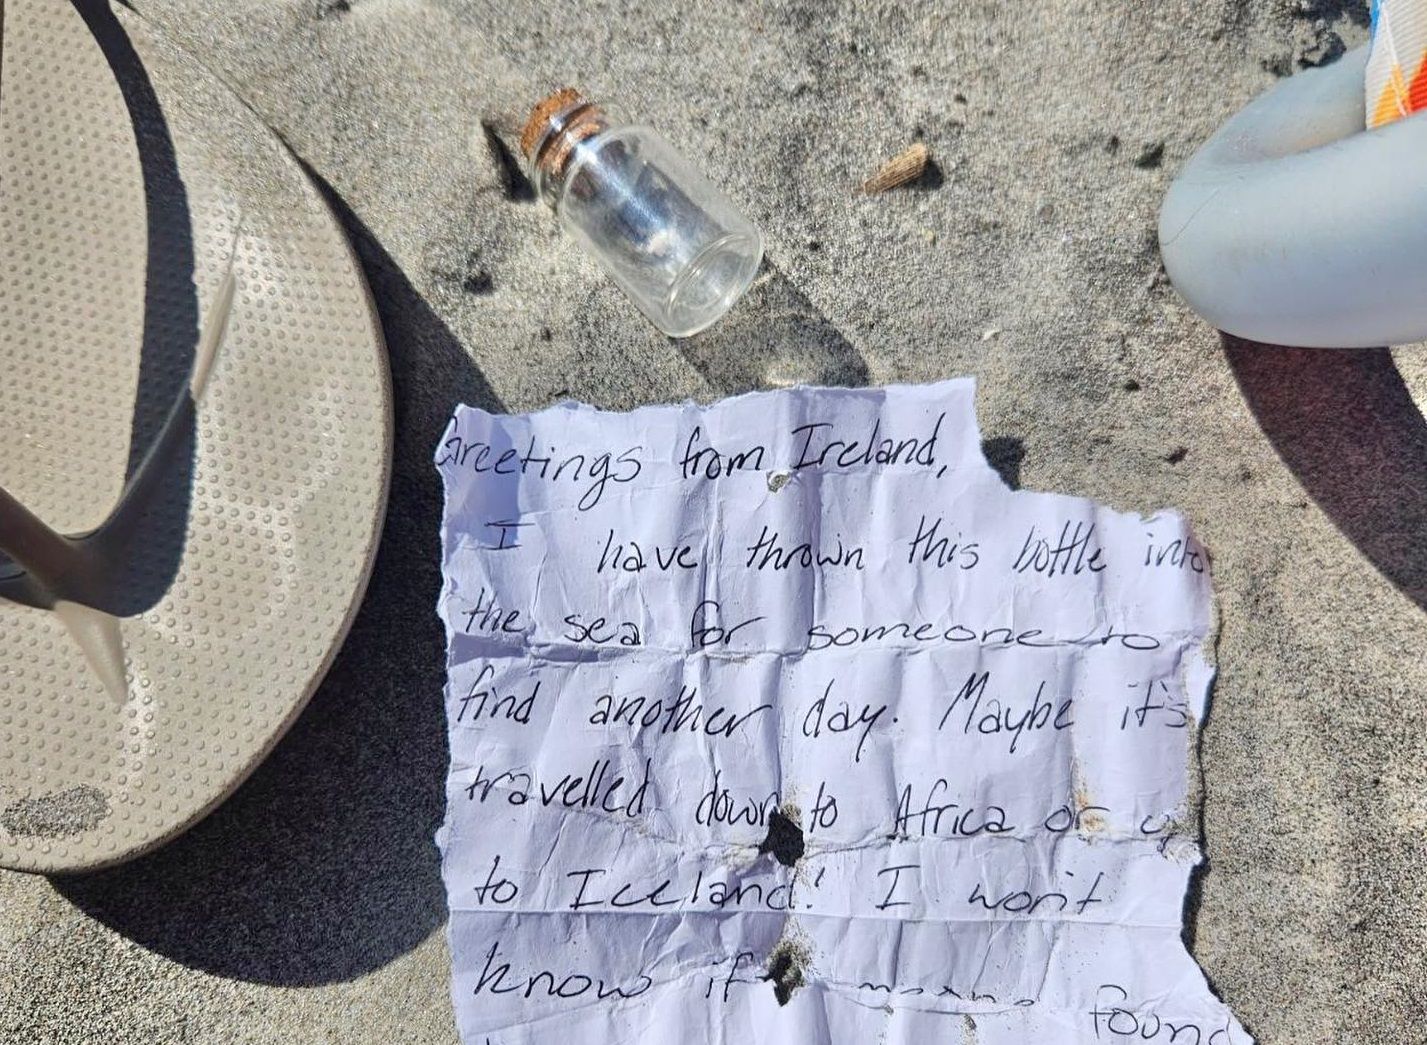 Greetings from Ireland,
I have thrown this bottle into
the sea for someone to
find another day. Maybe it's
travelled down to Africa or
to Iceland! I won't
know if found